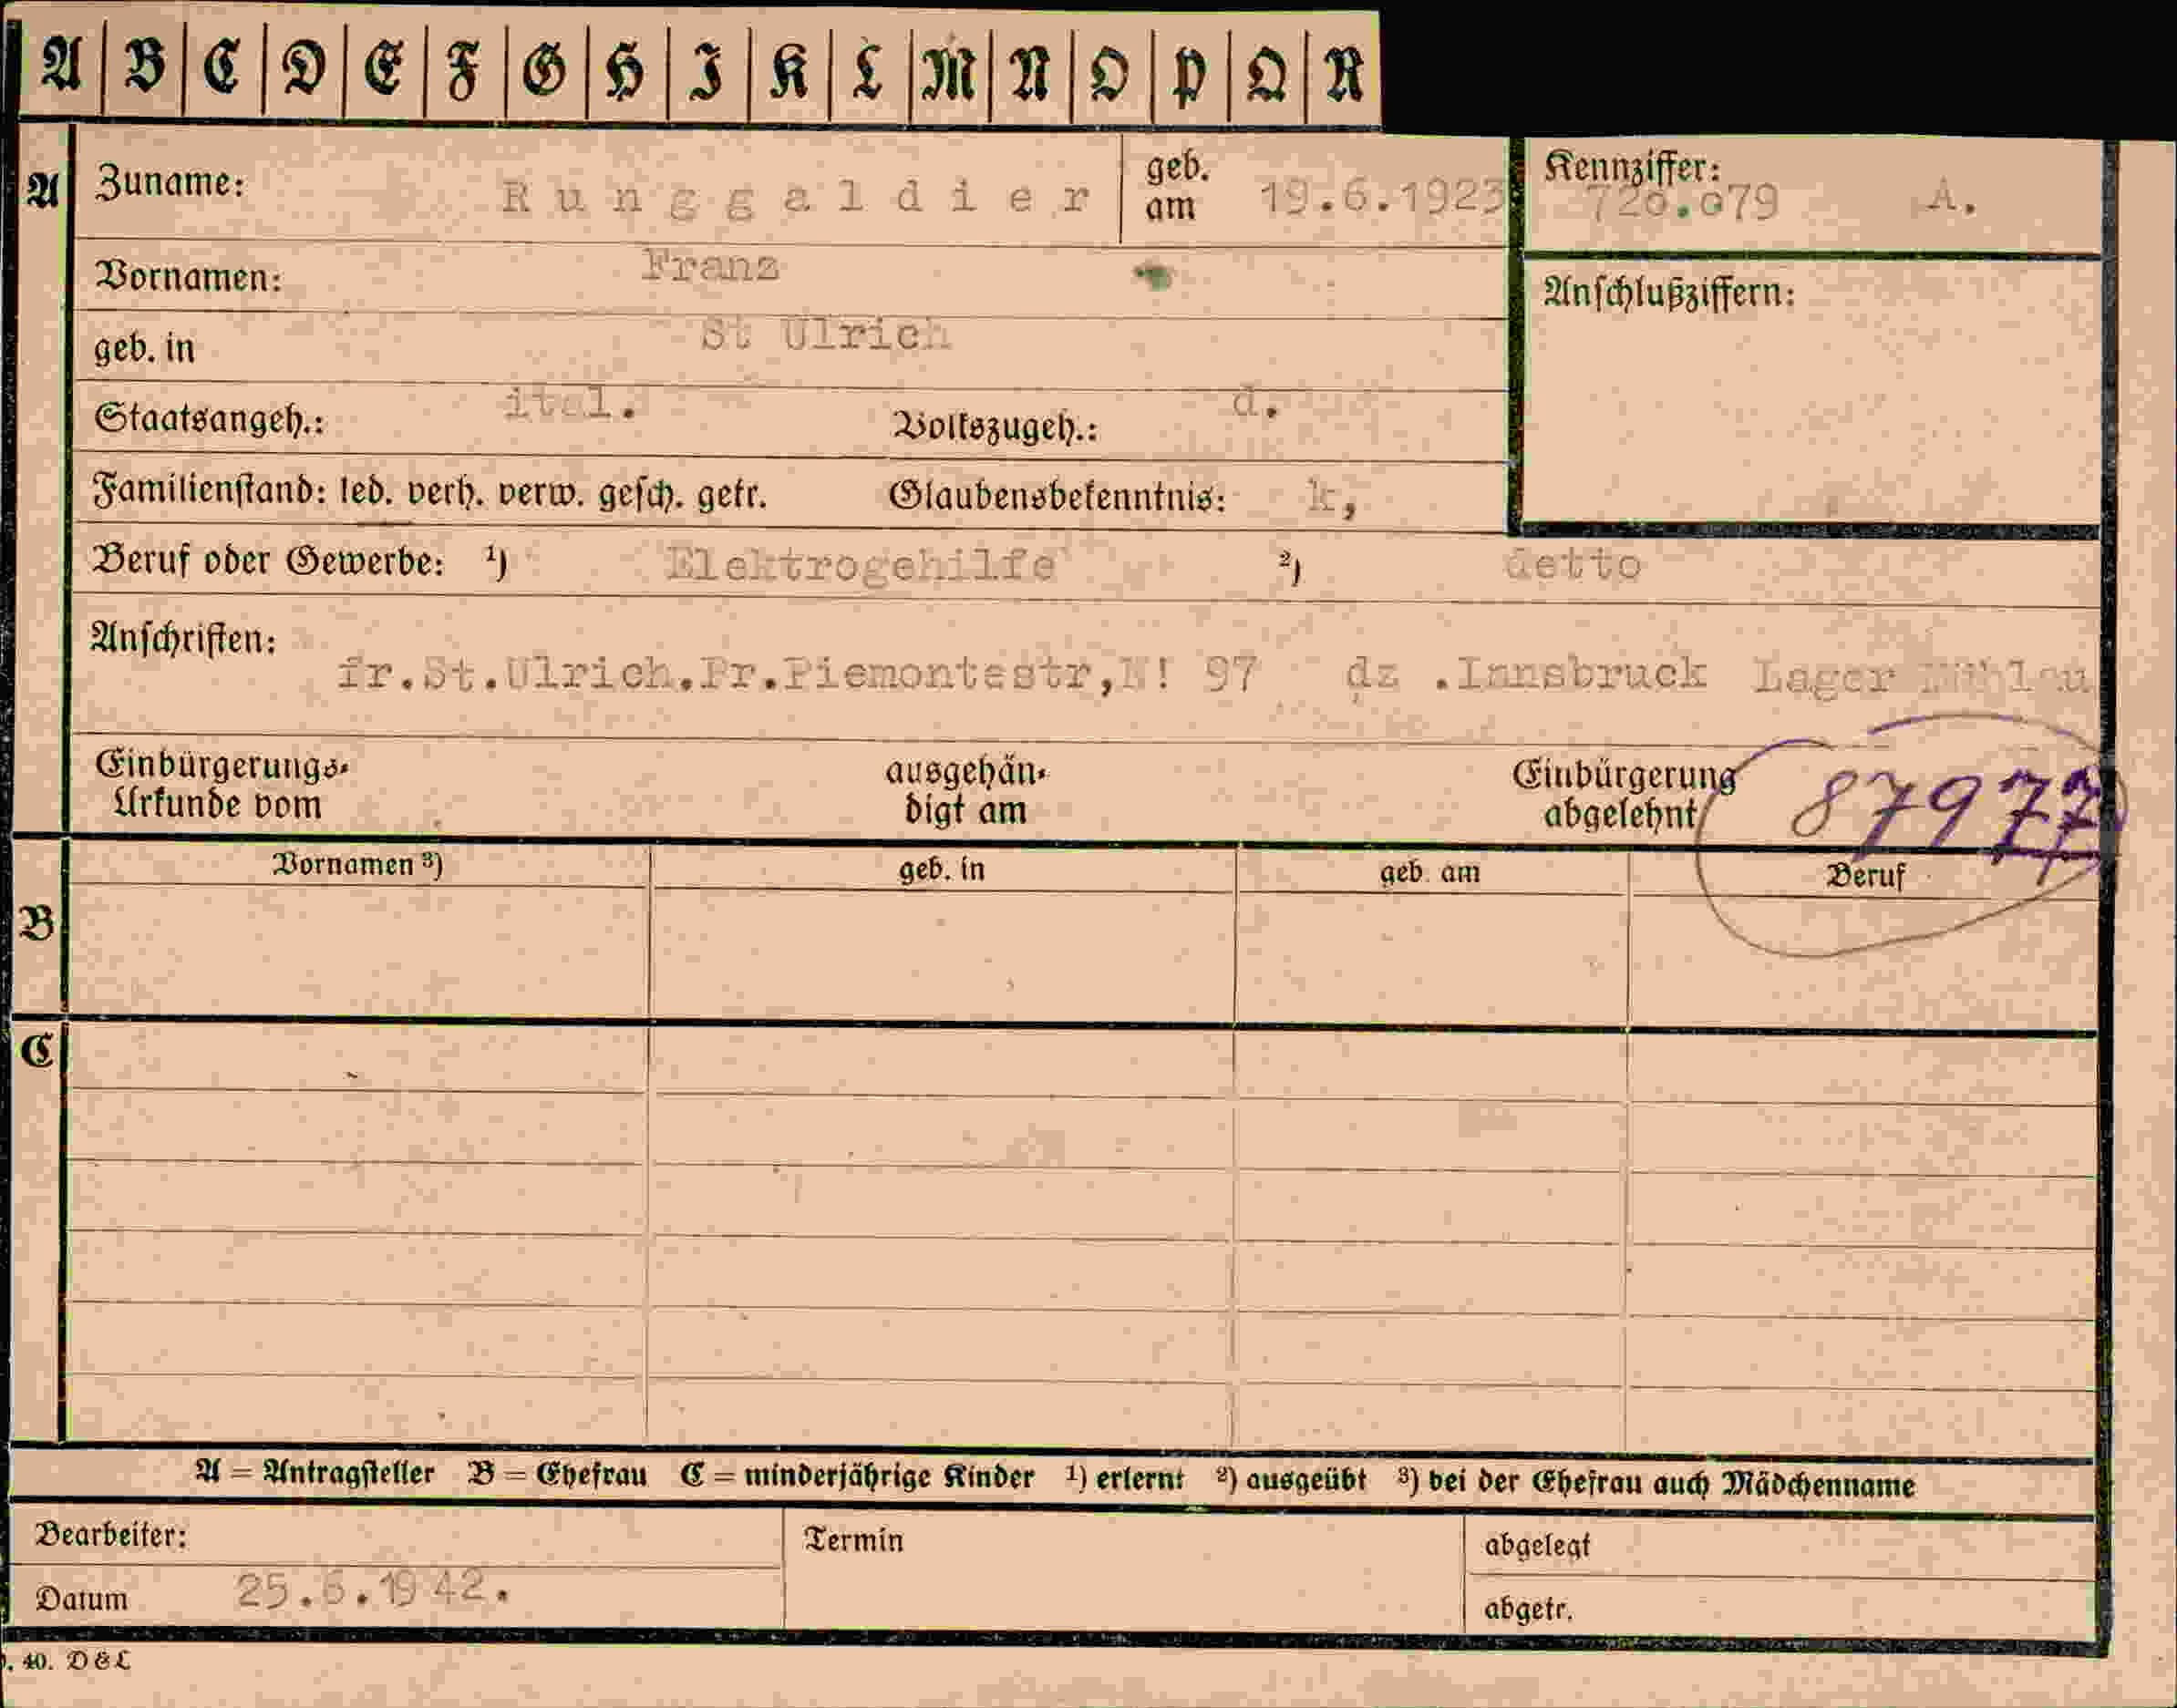 A B C D E F G H I K L M N O P Q R
A Zuname: Runggaldier geb. am 19.6.1923 Kennziffer: 720.079 A.
Vornamen: Franz
Anschlußziffern:
geb. in St Ulrich
Staatsangeh.: ital. Volkszugeh.: d.
Familienstand: led. verh. verw. gesch. getr. Glaubensbekenntnis: k,
Beruf oder Gewerbe: ¹) Elektrogehilfe ²) detto
Anschriften:
fr.St.Ulrich.Pr.Piemontestr,N! 97 dz .Innsbruck Lager Mühlau
Einbürgerungs- ausgehän- Einbürgerung
Urkunde vom digt am abgelehnt 87977
Vornamen ³) geb. in geb. am Beruf
B
C
A = Antragsteller B = Ehefrau C = minderjährige Kinder ¹) erlernt ²) ausgeübt ³) bei der Ehefrau auch Mädchenname
Bearbeiter: Termin abgelegt
Datum 25.6.1942. abgetr.
. 40. D & L